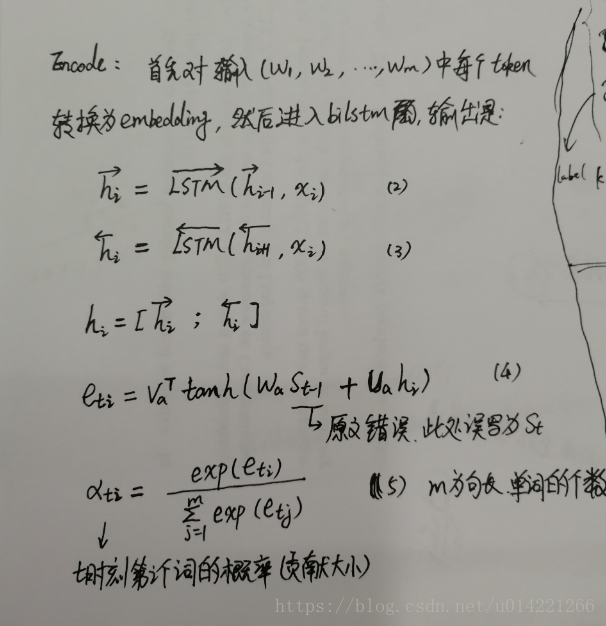 Encode: 首先对输入(w₁, w₂, ..., wₘ)中每个token
转换为embedding, 然后进入bilstm 输出是:
label k
→hᵢ = →LSTM(→hᵢ₋₁, xᵢ) (2)
←hᵢ = ←LSTM(←hᵢ₊₁, xᵢ) (3)
hᵢ = [→hᵢ ; ←hᵢ]
eₜᵢ = vₐᵀ tanh(Wₐ Sₜ₋₁ + Uₐ hᵢ) (4)
↳ 原文错误.此处误写为 Sₜ
αₜᵢ = exp(eₜᵢ) / Σⱼ₌₁ᵐ exp(eₜⱼ) (5) m为句长.单词的个数
↓
t时刻第i个词的概率(贡献大小)
https://blog.csdn.net/u014221266